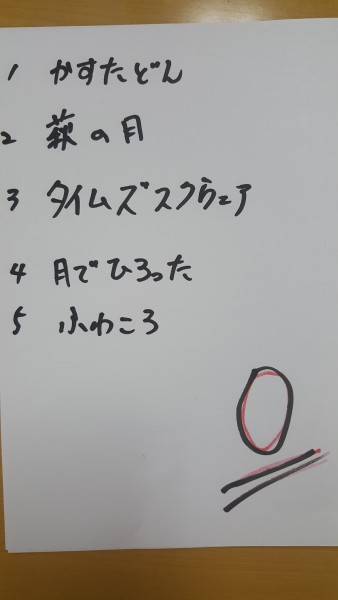 1 かすたどん
2 萩の月
3 タイムズスクウェア
4 月でひろった
5 ふわころ
0